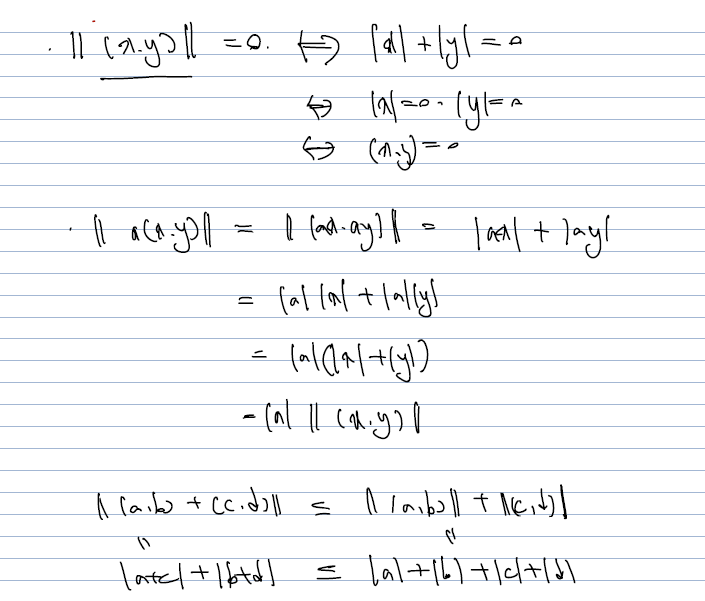 · ‖(x.y)‖ = 0. ⇔ |x| + |y| = 0
⇔ |x| = 0. |y| = 0
⇔ (x.y) = 0
· ‖a(x.y)‖ = ‖(ax.ay)‖ = |ax| + |ay|
= |a||x| + |a||y|
= |a|(|x| + |y|)
= |a| ‖(x.y)‖
‖(a.b) + (c.d)‖ ≤ ‖(a.b)‖ + ‖(c.d)‖
" "
|a+c| + |b+d| ≤ |a| + |b| + |c| + |d|